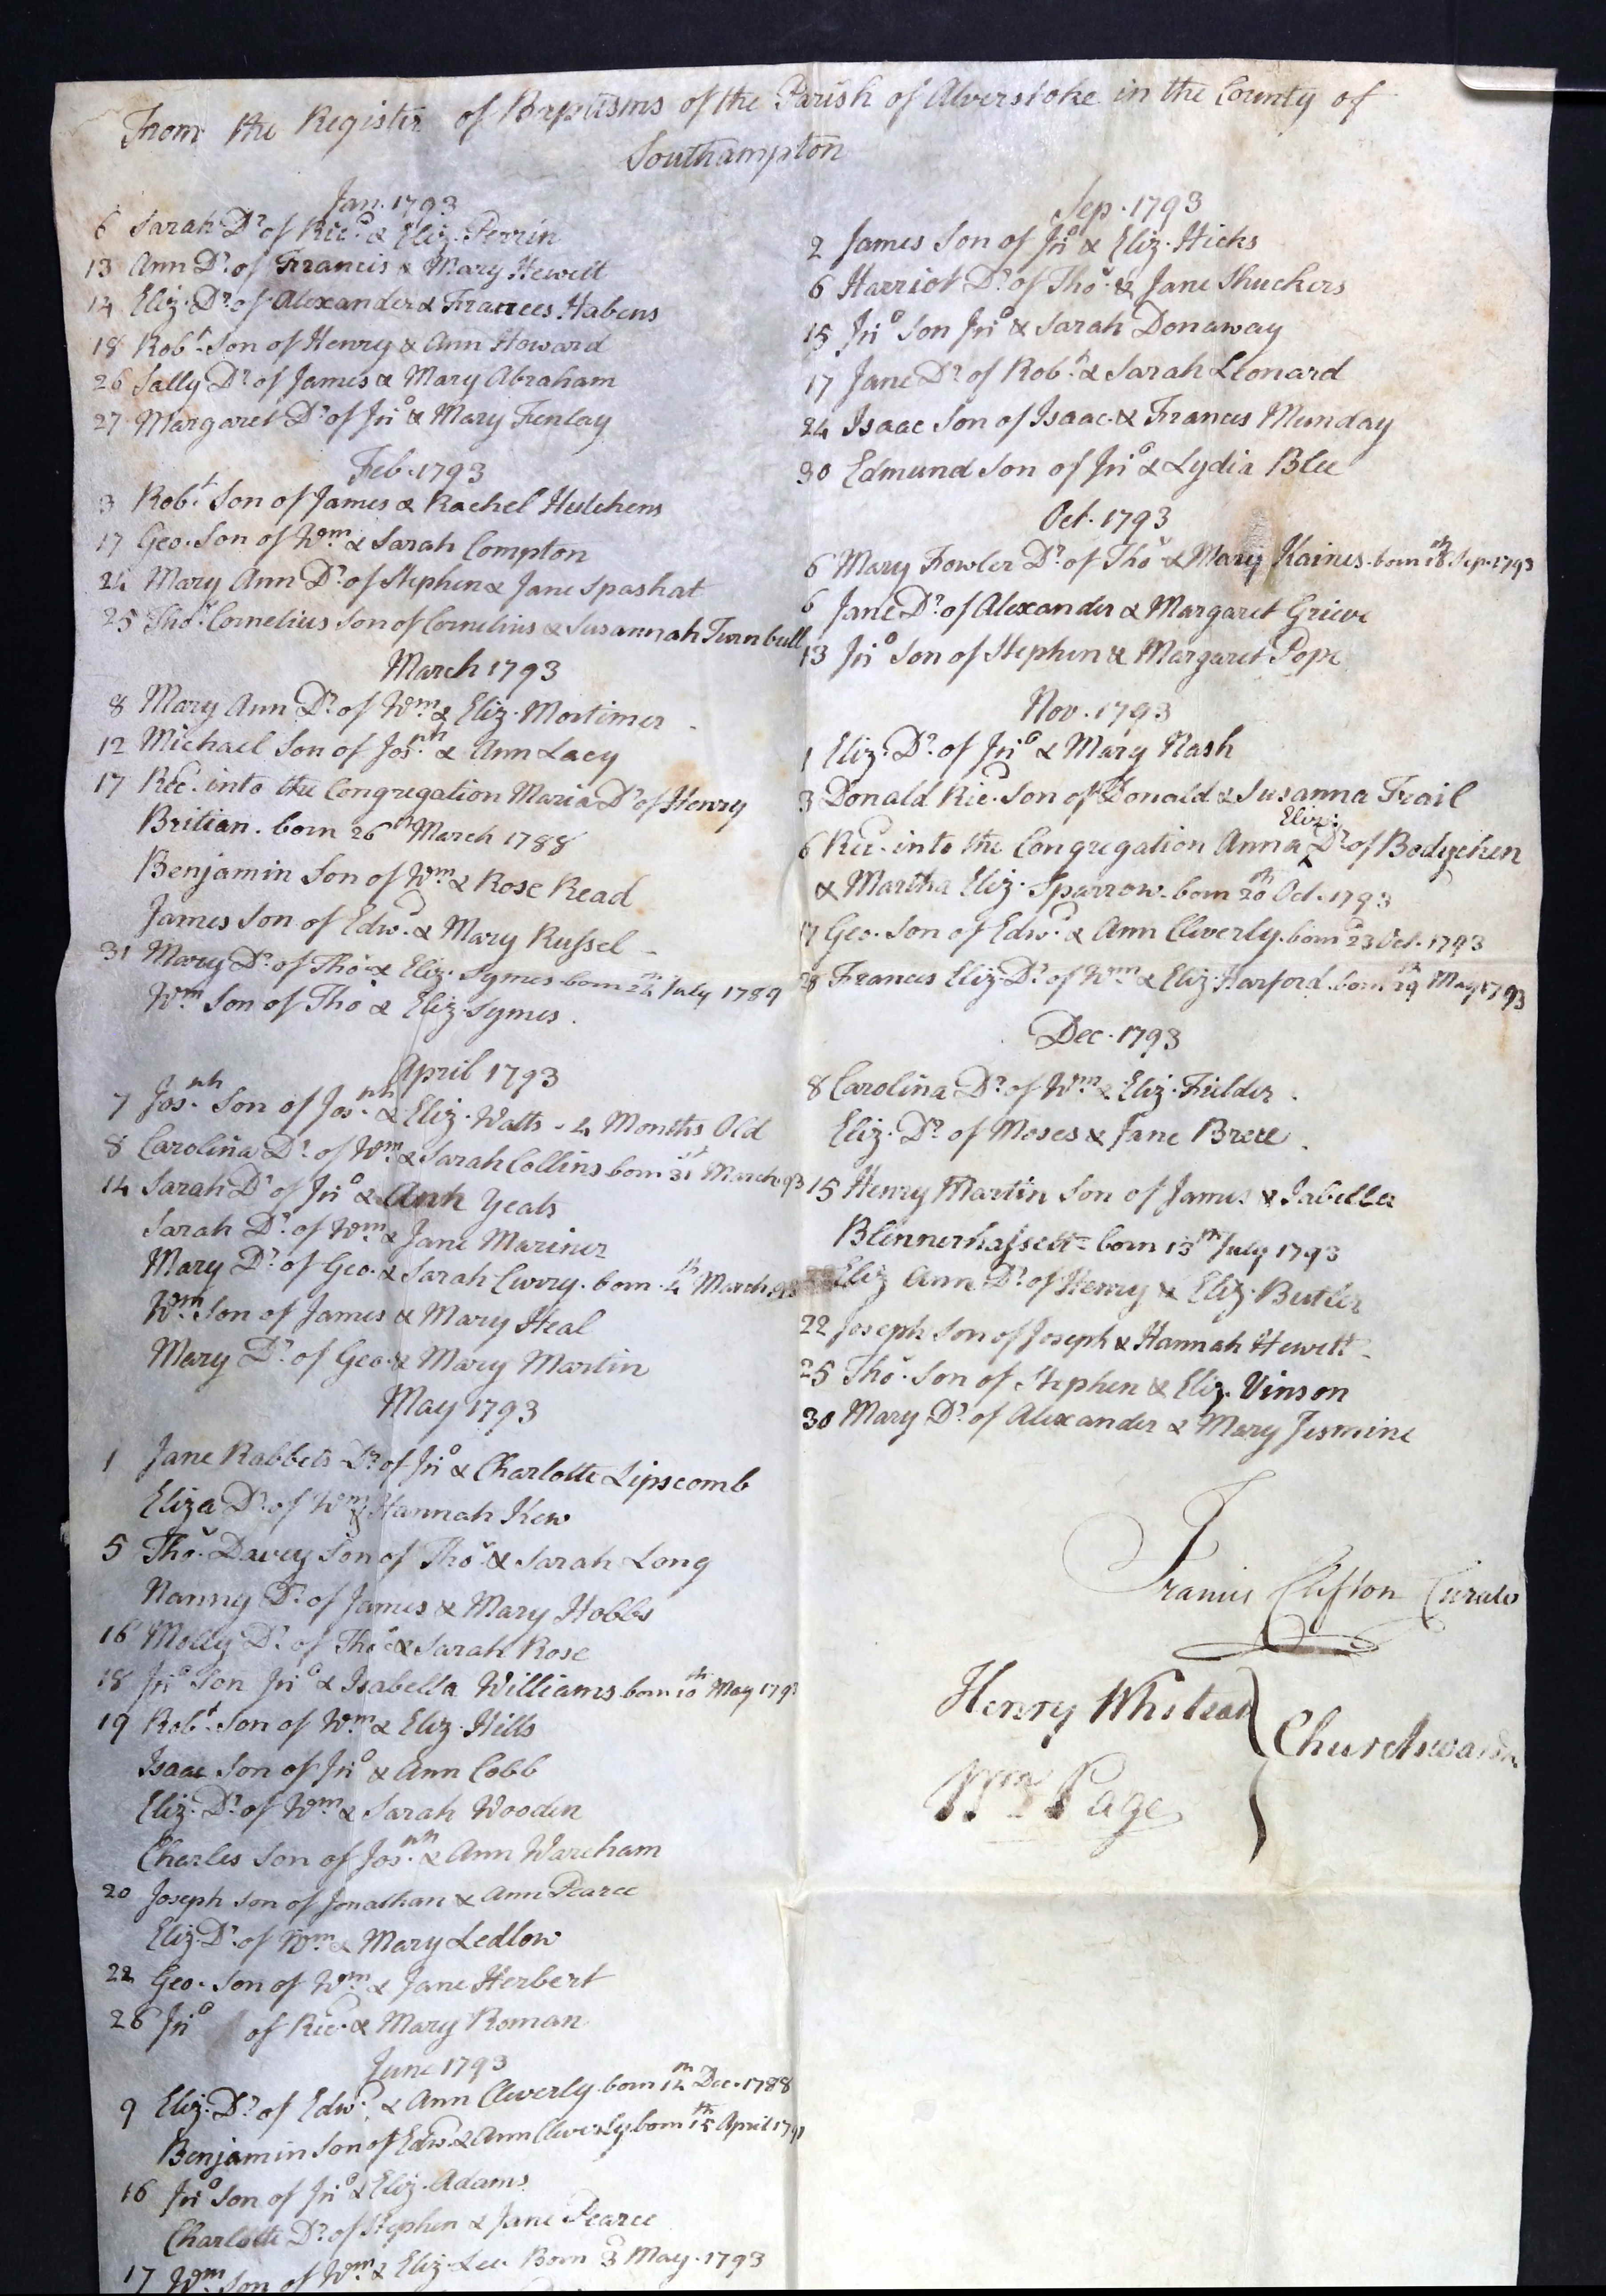 From the Register of Baptisms of the Parish of Alverstoke in the County of
Southampton
Jan. 1793
6 Sarah Dr. of Ricd. & Eliz. Perrin
13 Ann Dr. of Francis & Mary Hewett
14 Eliz. Dr. of Alexander & Frances Habens
18 Robt. Son of Henry & Ann Howard
26 Sally Dr. of James & Mary Abraham
27 Margaret Dr. of Jno. & Mary Finlay
Feb. 1793
3 Robt. Son of James & Rachel Hutchens
17 Geo. Son of Wm. & Sarah Compton
24 Mary Ann Dr. of Stephen & Jane Spashat
25 Thos. Cornelius Son of Cornelius & Susannah Turnbull
March 1793
8 Mary Ann Dr. of Wm. & Eliz. Mortimer
12 Michael Son of Josph. & Ann Lacy
17 Recd. into the Congregation Maria Dr. of Henry
Britian. born 26th March 1788
Benjamin Son of Wm. & Rose Read
James Son of Edwd. & Mary Russel
31 Mary Dr. of Thos. & Eliz. Symes born 24th July 1789
Wm. Son of Thos. & Eliz. Symes.
April 1793
7 Josph. Son of Josph. & Eliz. Watts - 4 Months Old
8 Carolina Dr. of Wm. & Sarah Collins born 31st March 93
14 Sarah Dr. of Jno. & Ann Yeats
Sarah Dr. of Wm. & Jane Mariner
Mary Dr. of Geo. & Sarah Curry. born 4th March 93
Wm. Son of James & Mary Heal
Mary Dr. of Geo. & Mary Martin
May 1793
1 Jane Rabbets Dr. of Jno. & Charlotte Lipscomb
Eliza Dr. of Wm. & Hannah Kew
5 Thos. Davey Son of Thos. & Sarah Long
Nanny Dr. of James & Mary Hobbs
16 Molly Dr. of Thos. & Sarah Rose
18 Jno. Son Jno. & Isabella Williams born 10th May 1793
19 Robt. Son of Wm. & Eliz. Hills
Isaac Son of Jno. & Ann Cobb
Eliz. Dr. of Wm. & Sarah Wooden
Charles Son of Josph. & Ann Wareham
20 Joseph Son of Jonathan & Ann Pearce
Eliz. Dr. of Wm. & Mary Ledlow
22 Geo. Son of Wm. & Jane Herbert
26 Jno. of Ricd. & Mary Roman
June 1793
9 Eliz. Dr. of Edwd. & Ann Cleverly born 14th Dec. 1788
Benjamin Son of Edwd. & Ann Cleverly born 15th April
16 Jno. Son of Jno. & Eliz. Adams
Charlotte Dr. of Stephen & Jane Pearce
17 Wm. Son of Wm. & Eliz. Lee Born 3 May. 1793
Sep. 1793
2 James Son of Jno. & Eliz. Hicks
6 Harriot Dr. of Thos. & Jane Shuckers
15 Jno. Son Jno. & Sarah Donaway
17 Jane Dr. of Robt. & Sarah Leonard
24 Isaac Son of Isaac & Frances Munday
30 Edmund Son of Jno. & Lydia Blee
Oct. 1793
6 Mary Fowler Dr. of Thos. & Mary Kaines. born 18th Sep. 1793
6 Jane Dr. of Alexander & Margaret Grieve
13 Jno. Son of Stephen & Margaret Pope
Nov. 1793
1 Eliz. Dr. of Jno. & Mary Nash
3 Donald Ric. Son of Donald & Susanna Trail
6 Recd. into the Congregation Anna Eliz. Dr. of Bodychen
& Martha Eliz. Sparrow. born 20th Oct. 1793
17 Geo. Son of Edwd. & Ann Cleverly. born 23 Oct. 1793
28 Frances Eliz. Dr. of Wm. & Eliz. Harford. born 29th May 1793
Dec. 1793
8 Carolina Dr. of Wm. & Eliz. Fielder.
Eliz. Dr. of Moses & Jane Brere.
15 Henry Martin Son of James & Isabella
Blennerhassett born 13th July 1793
Eliz Ann Dr. of Henry & Eliz. Butler
22 Joseph Son of Joseph & Hannah Hewett
25 Thos. Son of Stephen & Eliz. Vinson
30 Mary Dr. of Alexander & Mary Jesmine
Francis Clifton Curate
Henry Whitear
Churchwardn.
Wm. Page